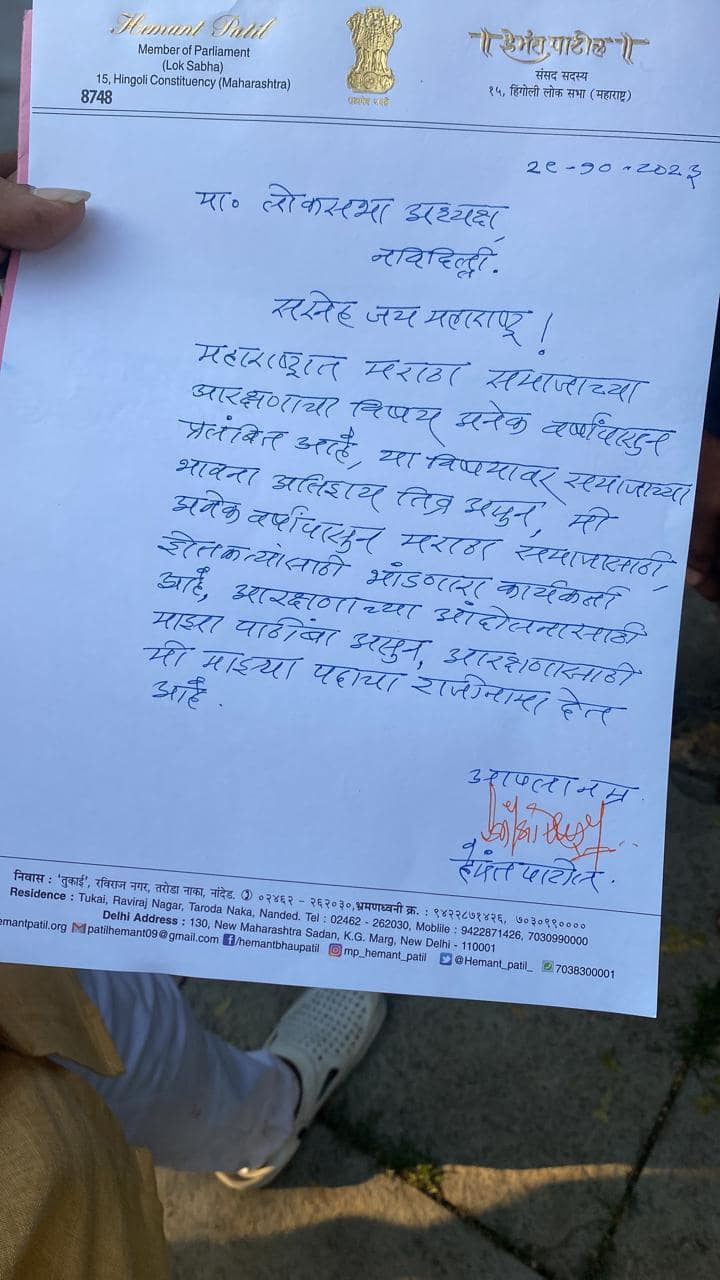 Hemant Patil
Member of Parliament
(Lok Sabha)
15, Hingoli Constituency (Maharashtra)
8748
॥ हेमंत पाटील ॥
संसद सदस्य
१५, हिंगोली लोक सभा (महाराष्ट्र)
२९-१०-२०२३
मा. लोकसभा अध्यक्ष,
नविदिल्ली.
सस्नेह जय महाराष्ट्र!
महाराष्ट्रात मराठा समाजाच्या
आरक्षणाचा विषय अनेक वर्षांपासुन
प्रलंबित आहे, या विषयावर समाजाच्या
भावना अतिशय तिव्र असुन, मी
अनेक वर्षांपासुन मराठा समाजासाठी,
शेतकऱ्यांसाठी भांडणारा कार्यकर्ता
आहे, आरक्षणाच्या आंदोलनासाठी
माझा पाठींबा असुन, आरक्षणासाठी
मी माझ्या पदाचा राजीनामा देत
आहे.
आपला नम्र
हेमंत पाटील.
निवास : 'तुकाई', रविराज नगर, तरोडा नाका, नांदेड. ✆ ०२४६२ - २६२०३०, भ्रमणध्वनी क्र. : ९४२२८७१४२६, ७०३०९९००००
Residence : Tukai, Raviraj Nagar, Taroda Naka, Nanded. Tel : 02462 - 262030, Moblile : 9422871426, 7030990000
Delhi Address : 130, New Maharashtra Sadan, K.G. Marg, New Delhi - 110001
emantpatil.org patilhemant09@gmail.com /hemantbhaupatil mp_hemant_patil @Hemant_patil_ 7038300001